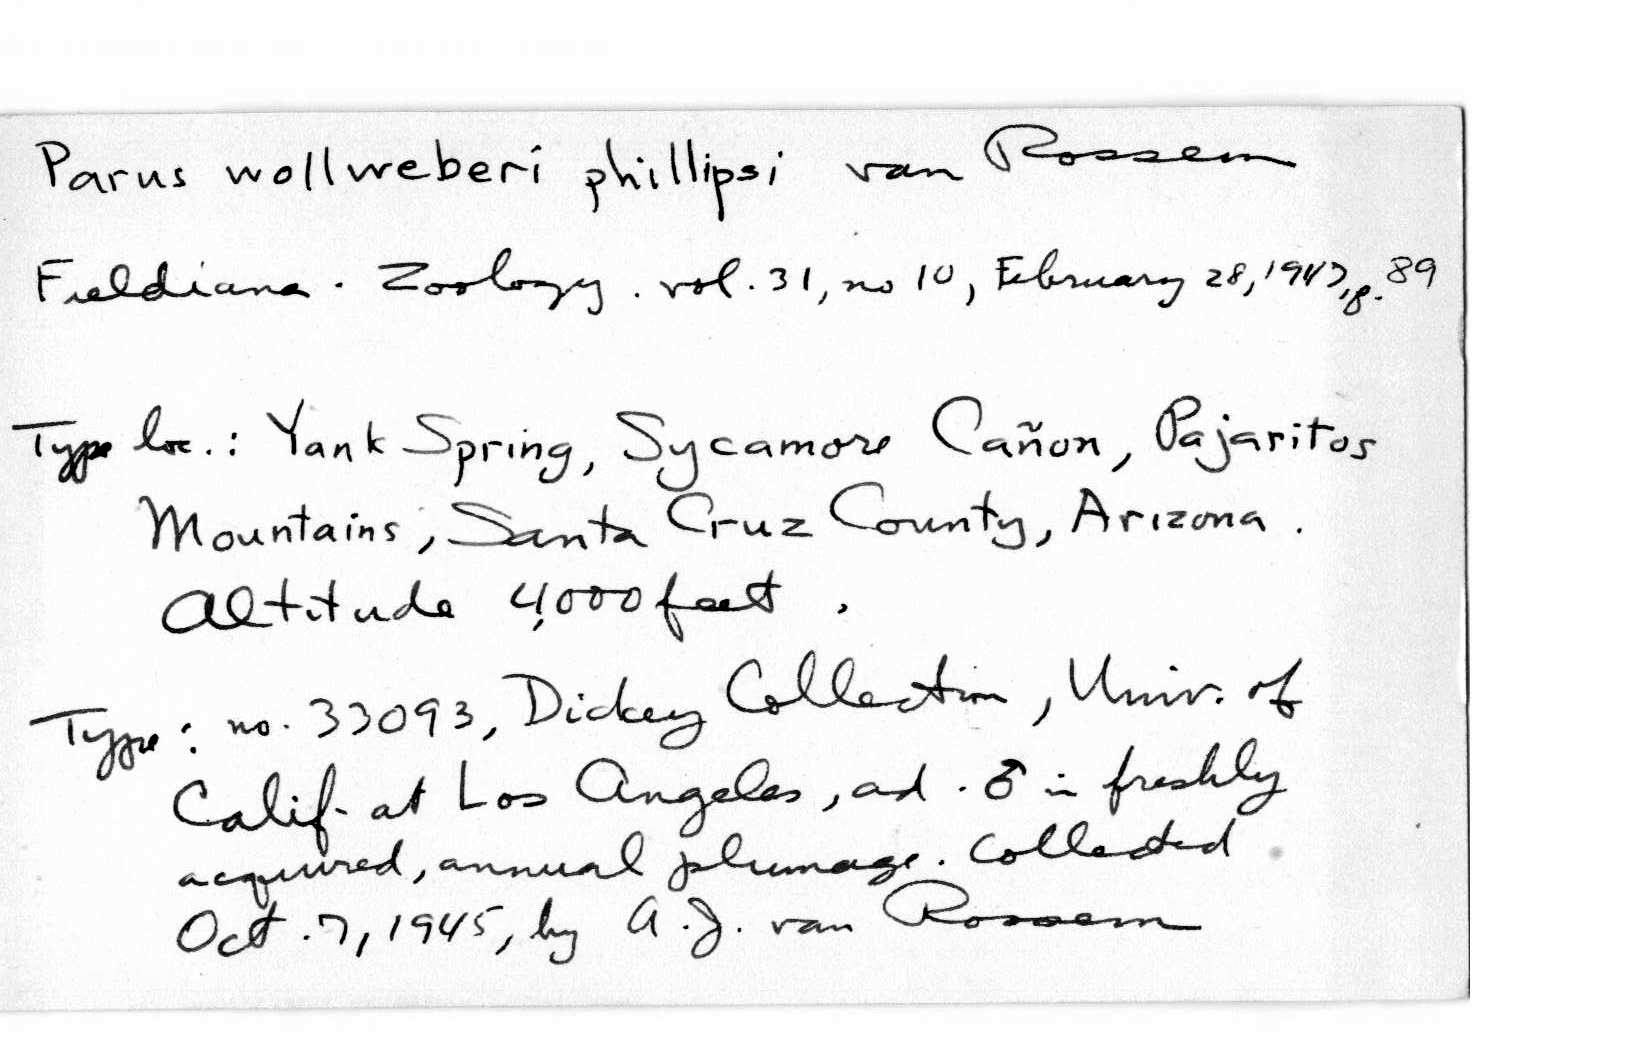 Parus wollweberi phillipsi van Rossem
Fieldiana. Zoology. vol. 31, no 10, February 28, 1947, p. 89
Type loc.: Yank Spring, Sycamore Cañon, Pajaritos
Mountains, Santa Cruz County, Arizona.
Altitude 4,000 feet.
Type: no. 33093, Dickey Collection, Univ. of
Calif. at Los Angeles, ad. ♂ in freshly
acquired, annual plumage. Collected
Oct. 7, 1945, by A.J. van Rossem